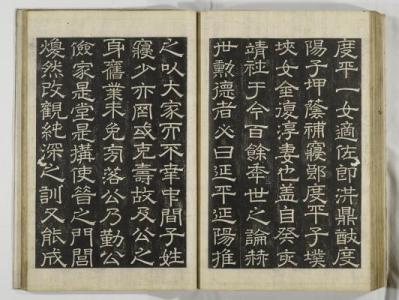 度平一女適佐郎洪鼎猷度
陽子押蔭補寢郞度平子墣
埉女全復淳妻也盖自癸亥
靖社于今百餘年世之論赫
世勳德者必曰延平延陽推
之以大家亦不幸中間子姓
寢少亦罔或克壽故及公之
身舊業未免旁落公乃勤公
儉家是堂是搆使晉之門閭
煥然改觀純深之訓又能成